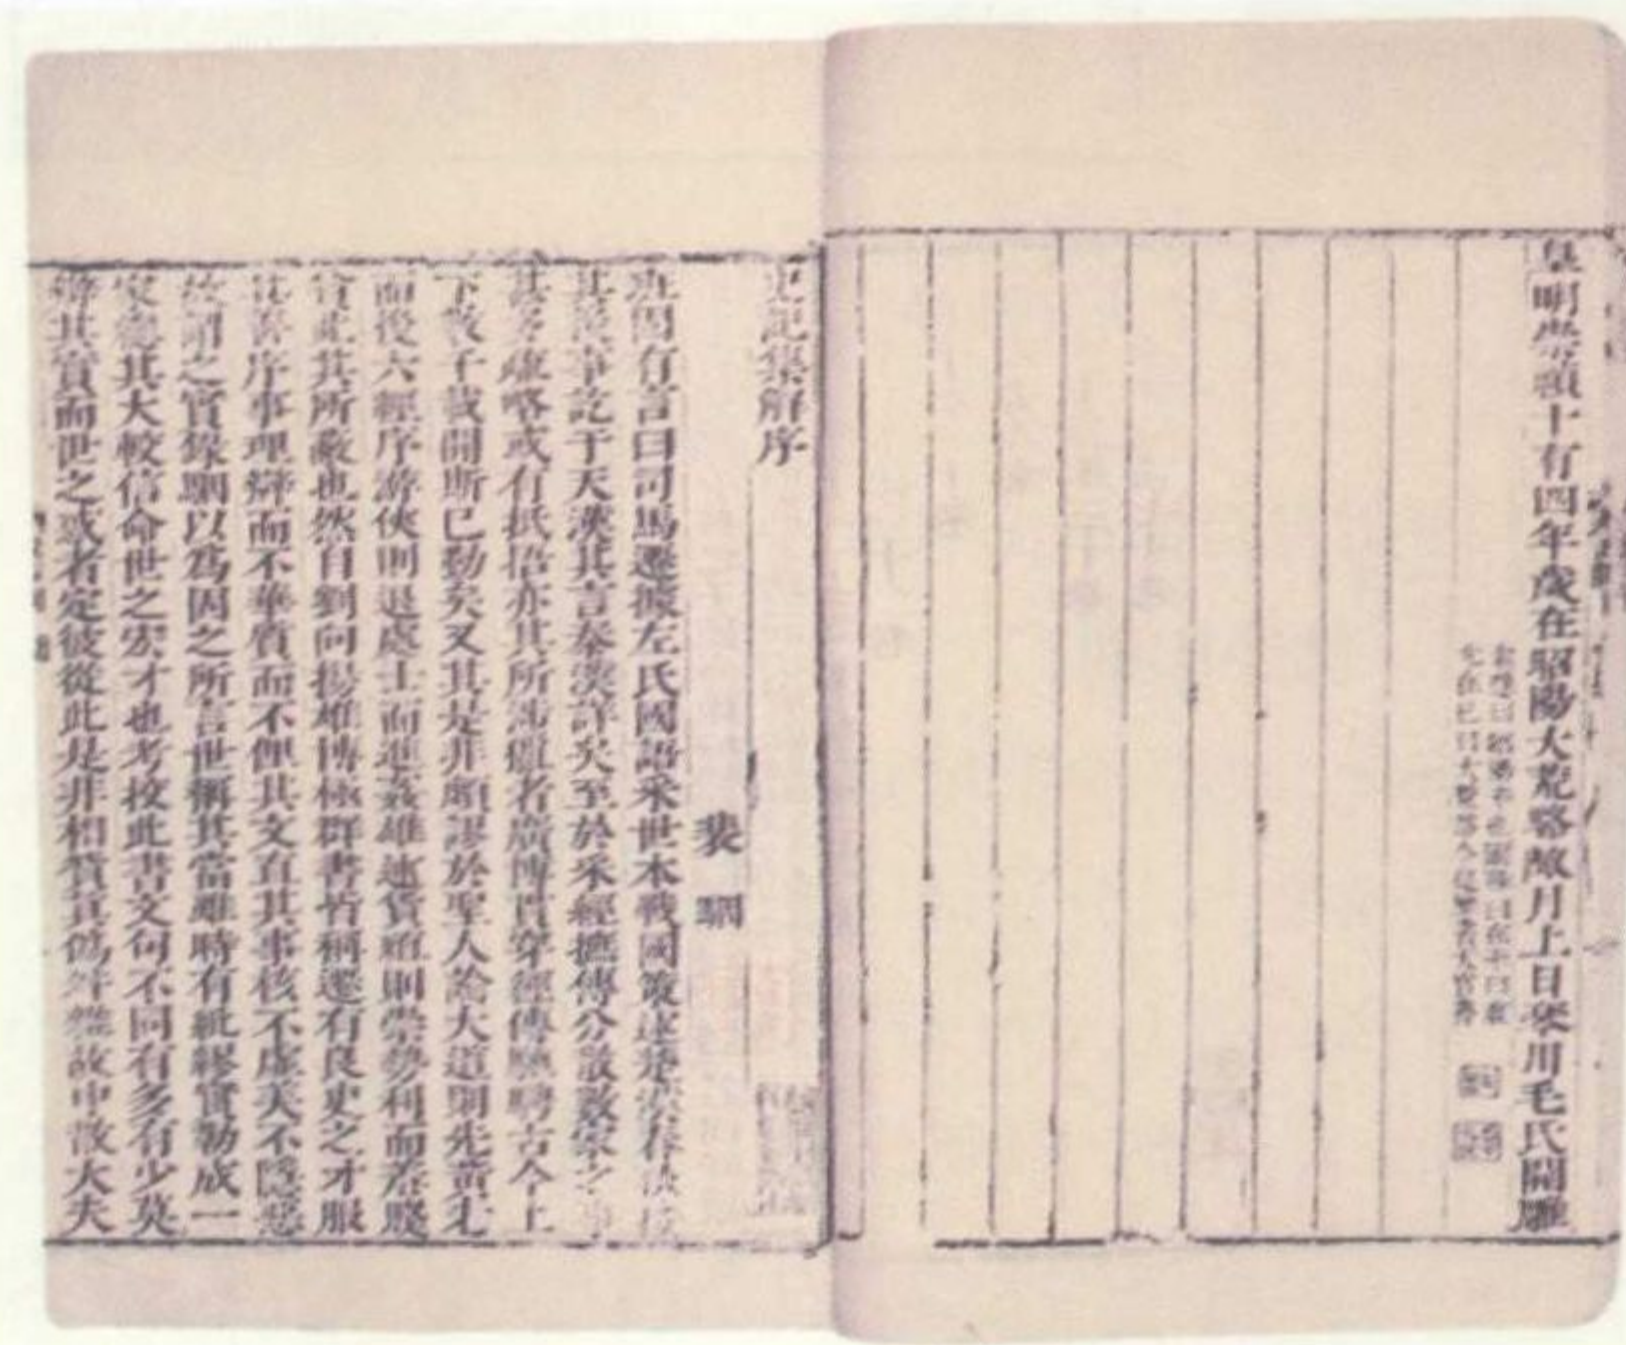 皇明崇禎十有四年歲在昭陽大荒駱敝月上日琴川毛氏開雕
史記集解序
裴駰
班固有言曰司馬遷據左氏國語采世本戰國策述楚漢春秋接
其後事訖于天漢其言秦漢詳矣至於采經摭傳分散數家之事
甚多疎略或有抵捂亦其所涉獵者廣博貫穿經傳馳騁古今上
下數千載間斯已勤矣又其是非頗謬於聖人論大道則先黃老
而後六經序游俠則退處士而進姦雄述貨殖則崇勢利而羞賤
貧此其所蔽也然自劉向揚雄博極群書皆稱遷有良史之才服
其善序事理辯而不華質而不俚其文直其事核不虛美不隱惡
故謂之實錄駰以為固之所言世稱其當雖時有紕繆實勒成一
家總其大較信命世之宏才也考挍此書文句不同有多有少莫
辯其實而世之惑者定彼從此是非相貿真偽舛雜故中散大夫